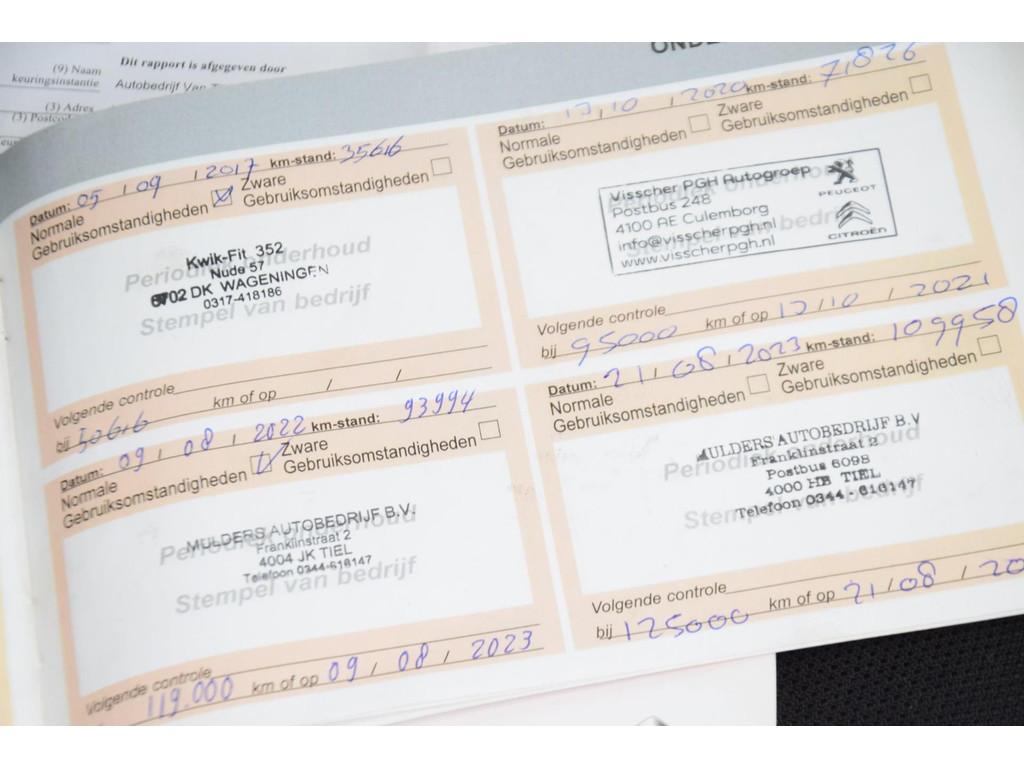 (9) Naam
keuringsinstantie
Dit rapport is afgegeven door
Autobedrijf Van
(3) Adres
(3)
Datum: 05 / 09 / 2017 km-stand: 35616
Normale
Gebruiksomstandigheden
Zware
Gebruiksomstandigheden
Periodiek onderhoud
Stempel van bedrijf
Kwik-Fit 352
Nude 57
6702 DK WAGENINGEN
0317-418186
Volgende controle
bij 50616 km of op / /
Datum: 12/10 / 2020 km-stand: 71826
Normale
Gebruiksomstandigheden
Zware
Gebruiksomstandigheden
Visscher PGH Autogroep
Postbus 248
4100 AE Culemborg
info@visscherpgh.nl
www.visscherpgh.nl
PEUGEOT
CITROËN
Volgende controle
bij 95000 km of op 12/10 / 2021
Datum: 09 / 08 / 2022 km-stand: 93994
Normale
Gebruiksomstandigheden
Zware
Gebruiksomstandigheden
Periodiek onderhoud
Stempel van bedrijf
MULDERS AUTOBEDRIJF B.V.
Franklinstraat 2
4004 JK TIEL
Telefoon 0344-616147
Volgende controle
119.000 km of op 09 / 08 / 2023
Datum: 21 / 08 / 2023 km-stand: 109958
Normale
Gebruiksomstandigheden
Zware
Gebruiksomstandigheden
Periodiek onderhoud
Stempel van bedrijf
MULDERS AUTOBEDRIJF B.V
Franklinstraat 2
Postbus 6098
4000 HB TIEL
Telefoon 0344-616147
Volgende controle
bij 125000 km of op 21 / 08 / 20